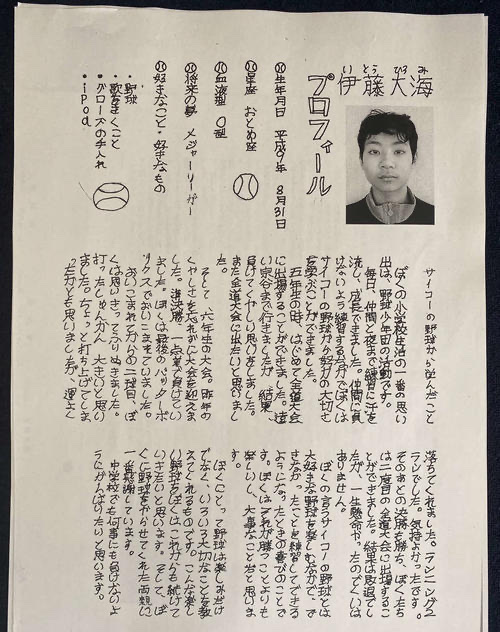 いとう ひろみ
伊藤 大海
プロフィール
生年月日 平成9年 8月31日
星座 おとめ座
血液型 O型
将来の夢 メジャーリーガー
好きなこと・好きなもの
・野球
・歌をきくこと
・グローブの手入れ
・iPod
サイコーの野球から学んだこと
ぼくの小学校生活の一番の思い
出は、野球少年団の活動です。
毎日、仲間と夜まで練習に汗を
流し、成長できました。仲間に負
けないよう練習する分かでぼくは
サイコーの野球から努力の大切さ
を学ぶことができました。
五年生の時、はじめて全道大会
に出場することができました。遠
い宗谷まで行きましたが、結果
負けてくやしい思いをしました。
また全道大会に出たいと思いまし
た。
そして、六年生の大会。昨年の
くやしさを忘れずに大会を迎えま
した。準決勝、一点差で負けてい
ました。ぼくは最後のバッターボ
ックスでおいこまれていました。
おいこまれてからの二球目、ぼ
くは思いきってふりぬきました。
打ったしゅんかん、大きいと思い
ました。ちょっと打ち上げてしま
ったかとも思いましたが、運よく
落ちてくれました。ランニング2
ランでした。気持よかったです。
そのあとの決勝も勝ち、ぼくたち
は二度目の全道大会に出場するこ
とができました。結果は敗退でし
たが、一生懸命やったのでくいは
ありません。
ぼくの言うサイコーの野球とは
大好きな野球を楽しむなかで、で
きなかったことを練習してできる
ようになったときの喜びのことで
す。ぼくはそれが勝つことよりも
楽しいし、大事なことだと思いま
す。
ぼくにとって野球は楽しみだけ
でなく、いろいろ大切なことを教
えてくれるものです。こんな楽し
い野球をぼくは、これからも続けて
いきたいと思います。そして、ぼ
くに野球をやらせてくれた両親に
一番感謝しています。
中学校でも何事にも負けないよ
うにがんばりたいと思います。